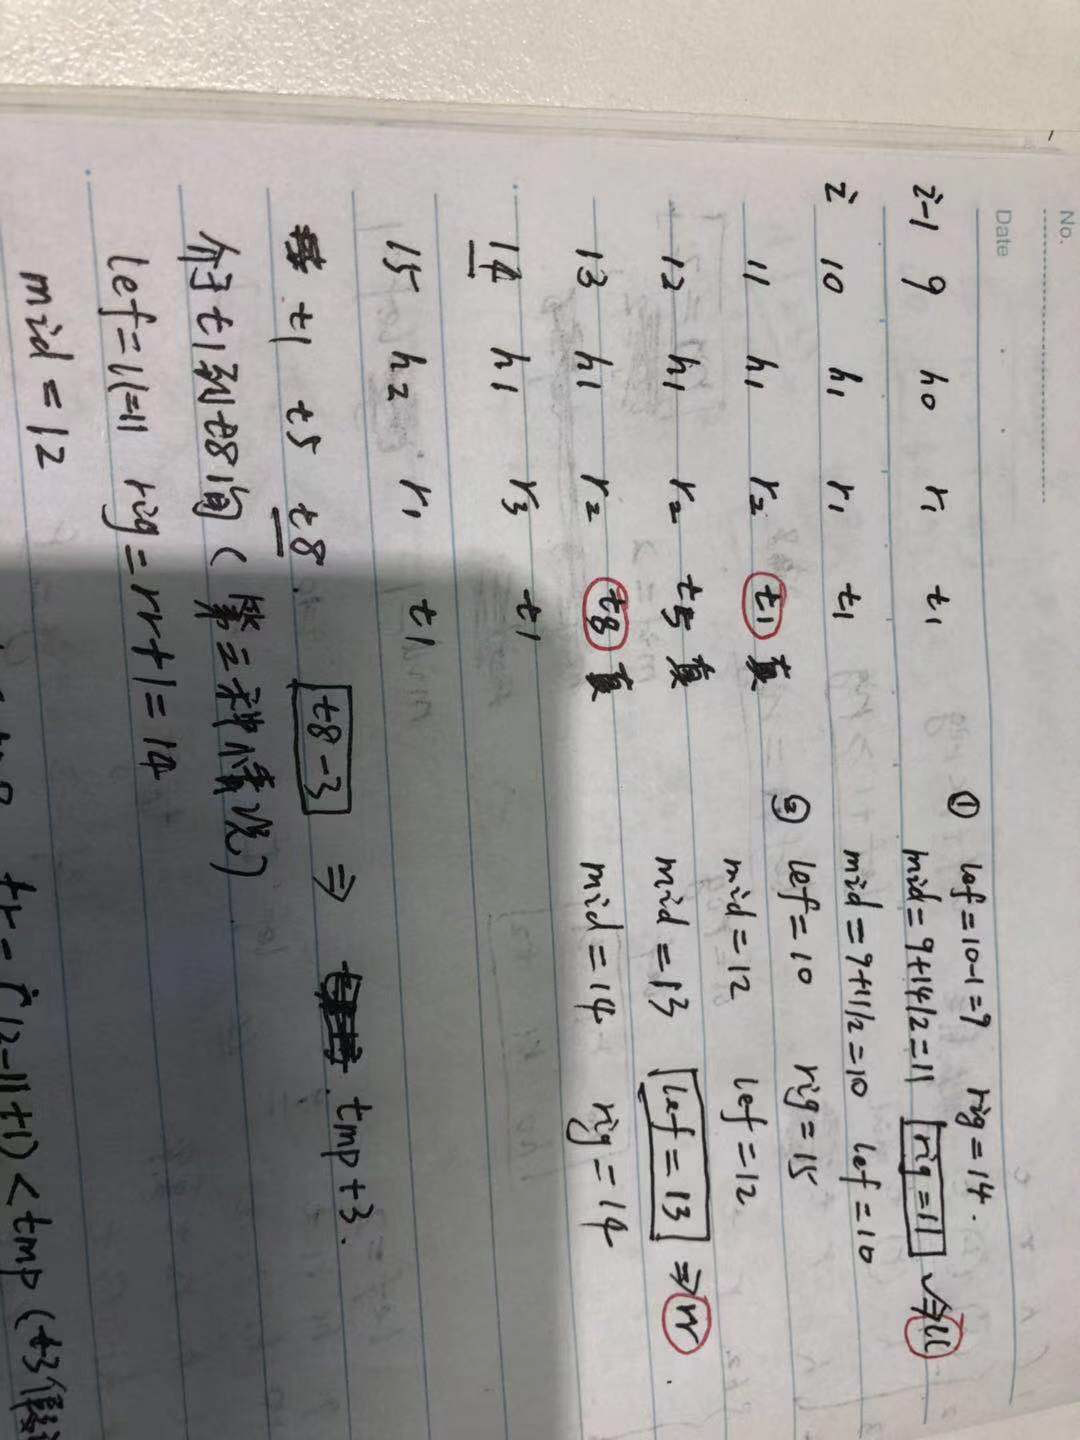 No.
Date
① lef=10-1=9 rig=14.
i-1 9 h0 r1 t1 mid=9+14/2=11 rig=11 √令ll
i 10 h1 r1 t1 mid=9+11/2=10 lef=10
11 h1 r2 t1 真 ② lef=10 rig=15
mid=12 lef=12
12 h1 r2 t5 真 mid=13 lef=13 ⇒rr.
13 h1 r2 t8 真 mid=14 rig=14
14 h1 r3 t1
15 h2 r1 t1
t1 t5 t8. t8-3 ⇒ tmp+3.
介于t1到t8间(第三种情况)
lef=ll=11 rig=rr+1=14
mid=12
tr-(12-11+1)<tmp(t3假